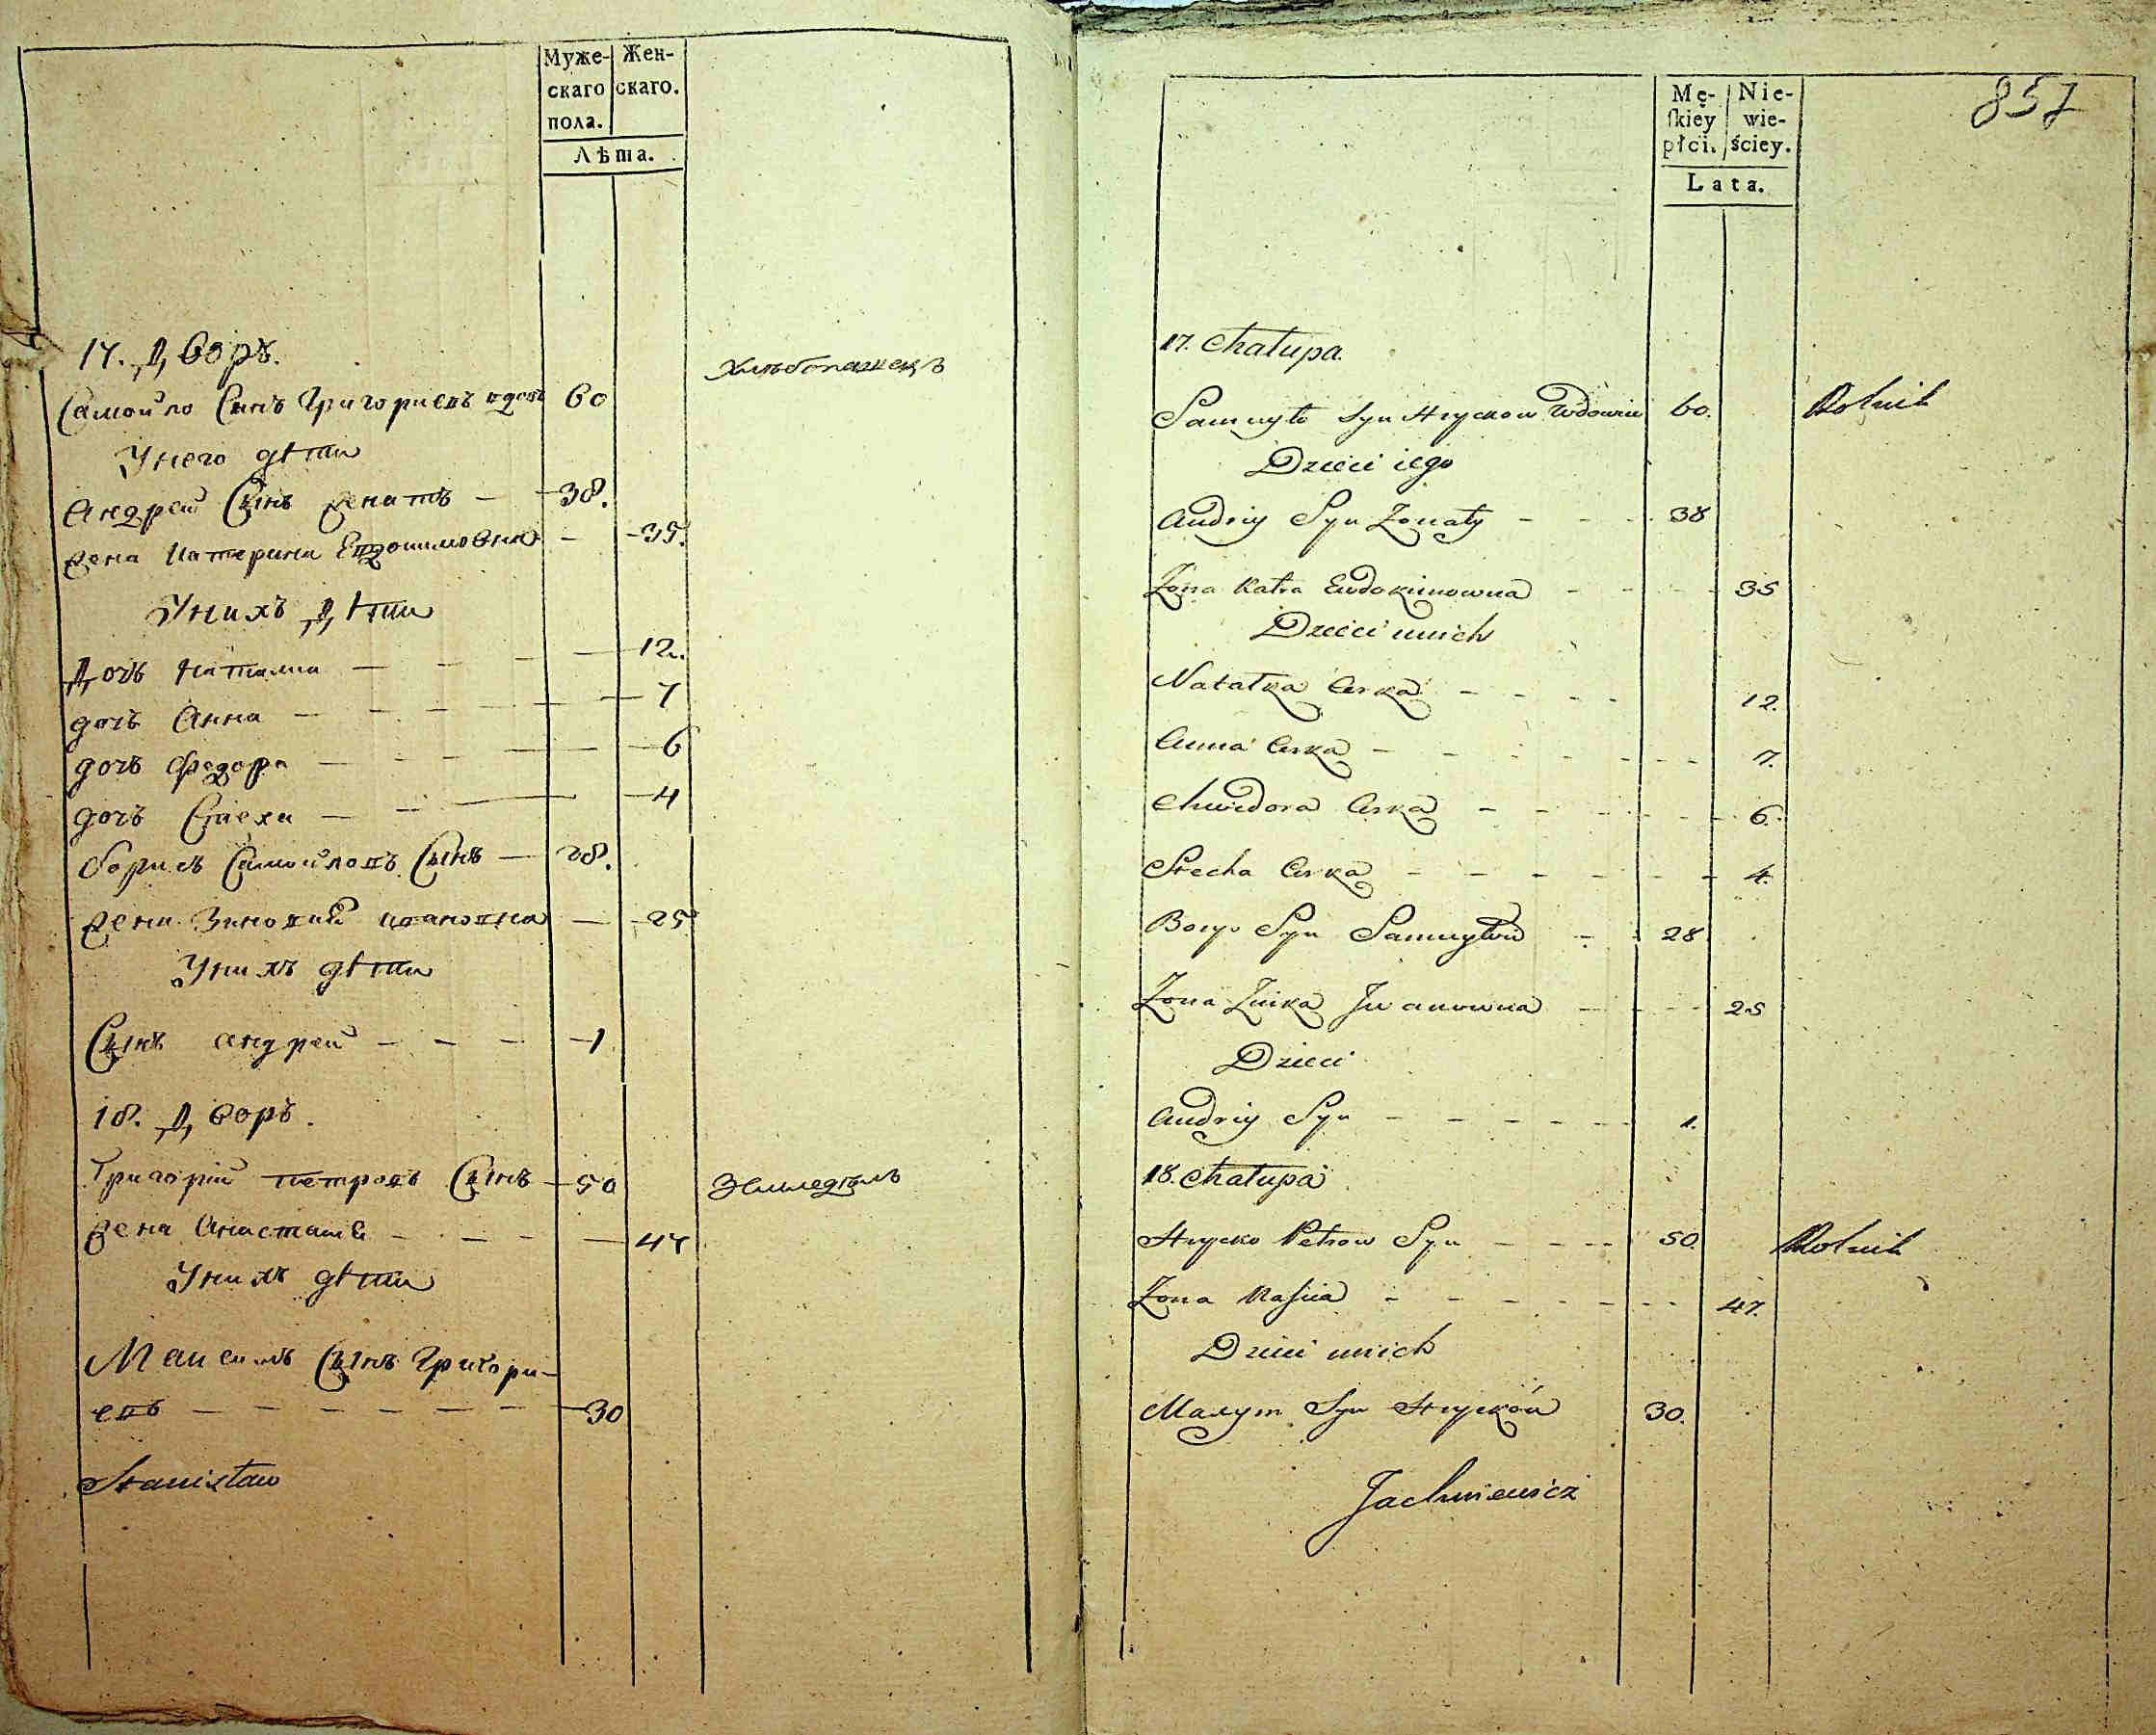 Муже- Жен-
скаго скаго.
пола.
Лѣта.
17. Дворъ.
Хлѣбопашецъ
Самойло Сынъ Григориевъ вдовъ 60
Унего дѣти
Андрей Сынъ женатъ — 38.
жена Катерина Евдокимовна — 35.
Унихъ Дѣти
Дочь Наталиа — 12.
дочь Анна — 7
дочь Федора — 6
дочь Стеха — 4
Борисъ Самойловъ Сынъ — 28.
жена Зиновия ивановна — 25
Унихъ дѣти
Сынъ андрей — 1
18. Дворъ.
Григорій петровъ Сынъ — 50 Земледѣль
жена Анастасия — 47
Унихъ дѣти
Максимъ Сынъ Григори-
евъ — 30
Stanisław
Mę- Nie-
skiey wie-
płci. ściey.
Lata.
857
17. Chałupa.
Samuyło Syn Hryckow Wdowiec 60. Rolnik
Dzieci iego
Andriy Syn Żonaty - - 38
Żona Katra Ewdokimowna - - - 35
Dzieci unich
Natałka Curka - - - 12.
Anna Curka - - - 7.
Chwedora Curka - - - 6.
Stecha Curka - - - 4.
Borys Syn Samuyłów - 28
Żona Zinka Jwanowna - - - 25
Dzieci
Andriy Syn - - - 1.
18. Chałupa
Hrycko Petrow Syn - - - 50. Rolnik
Żona Nascia - - - 47.
Dzieci unich
Maxym Syn Hrycków 30.
Jachniewicz